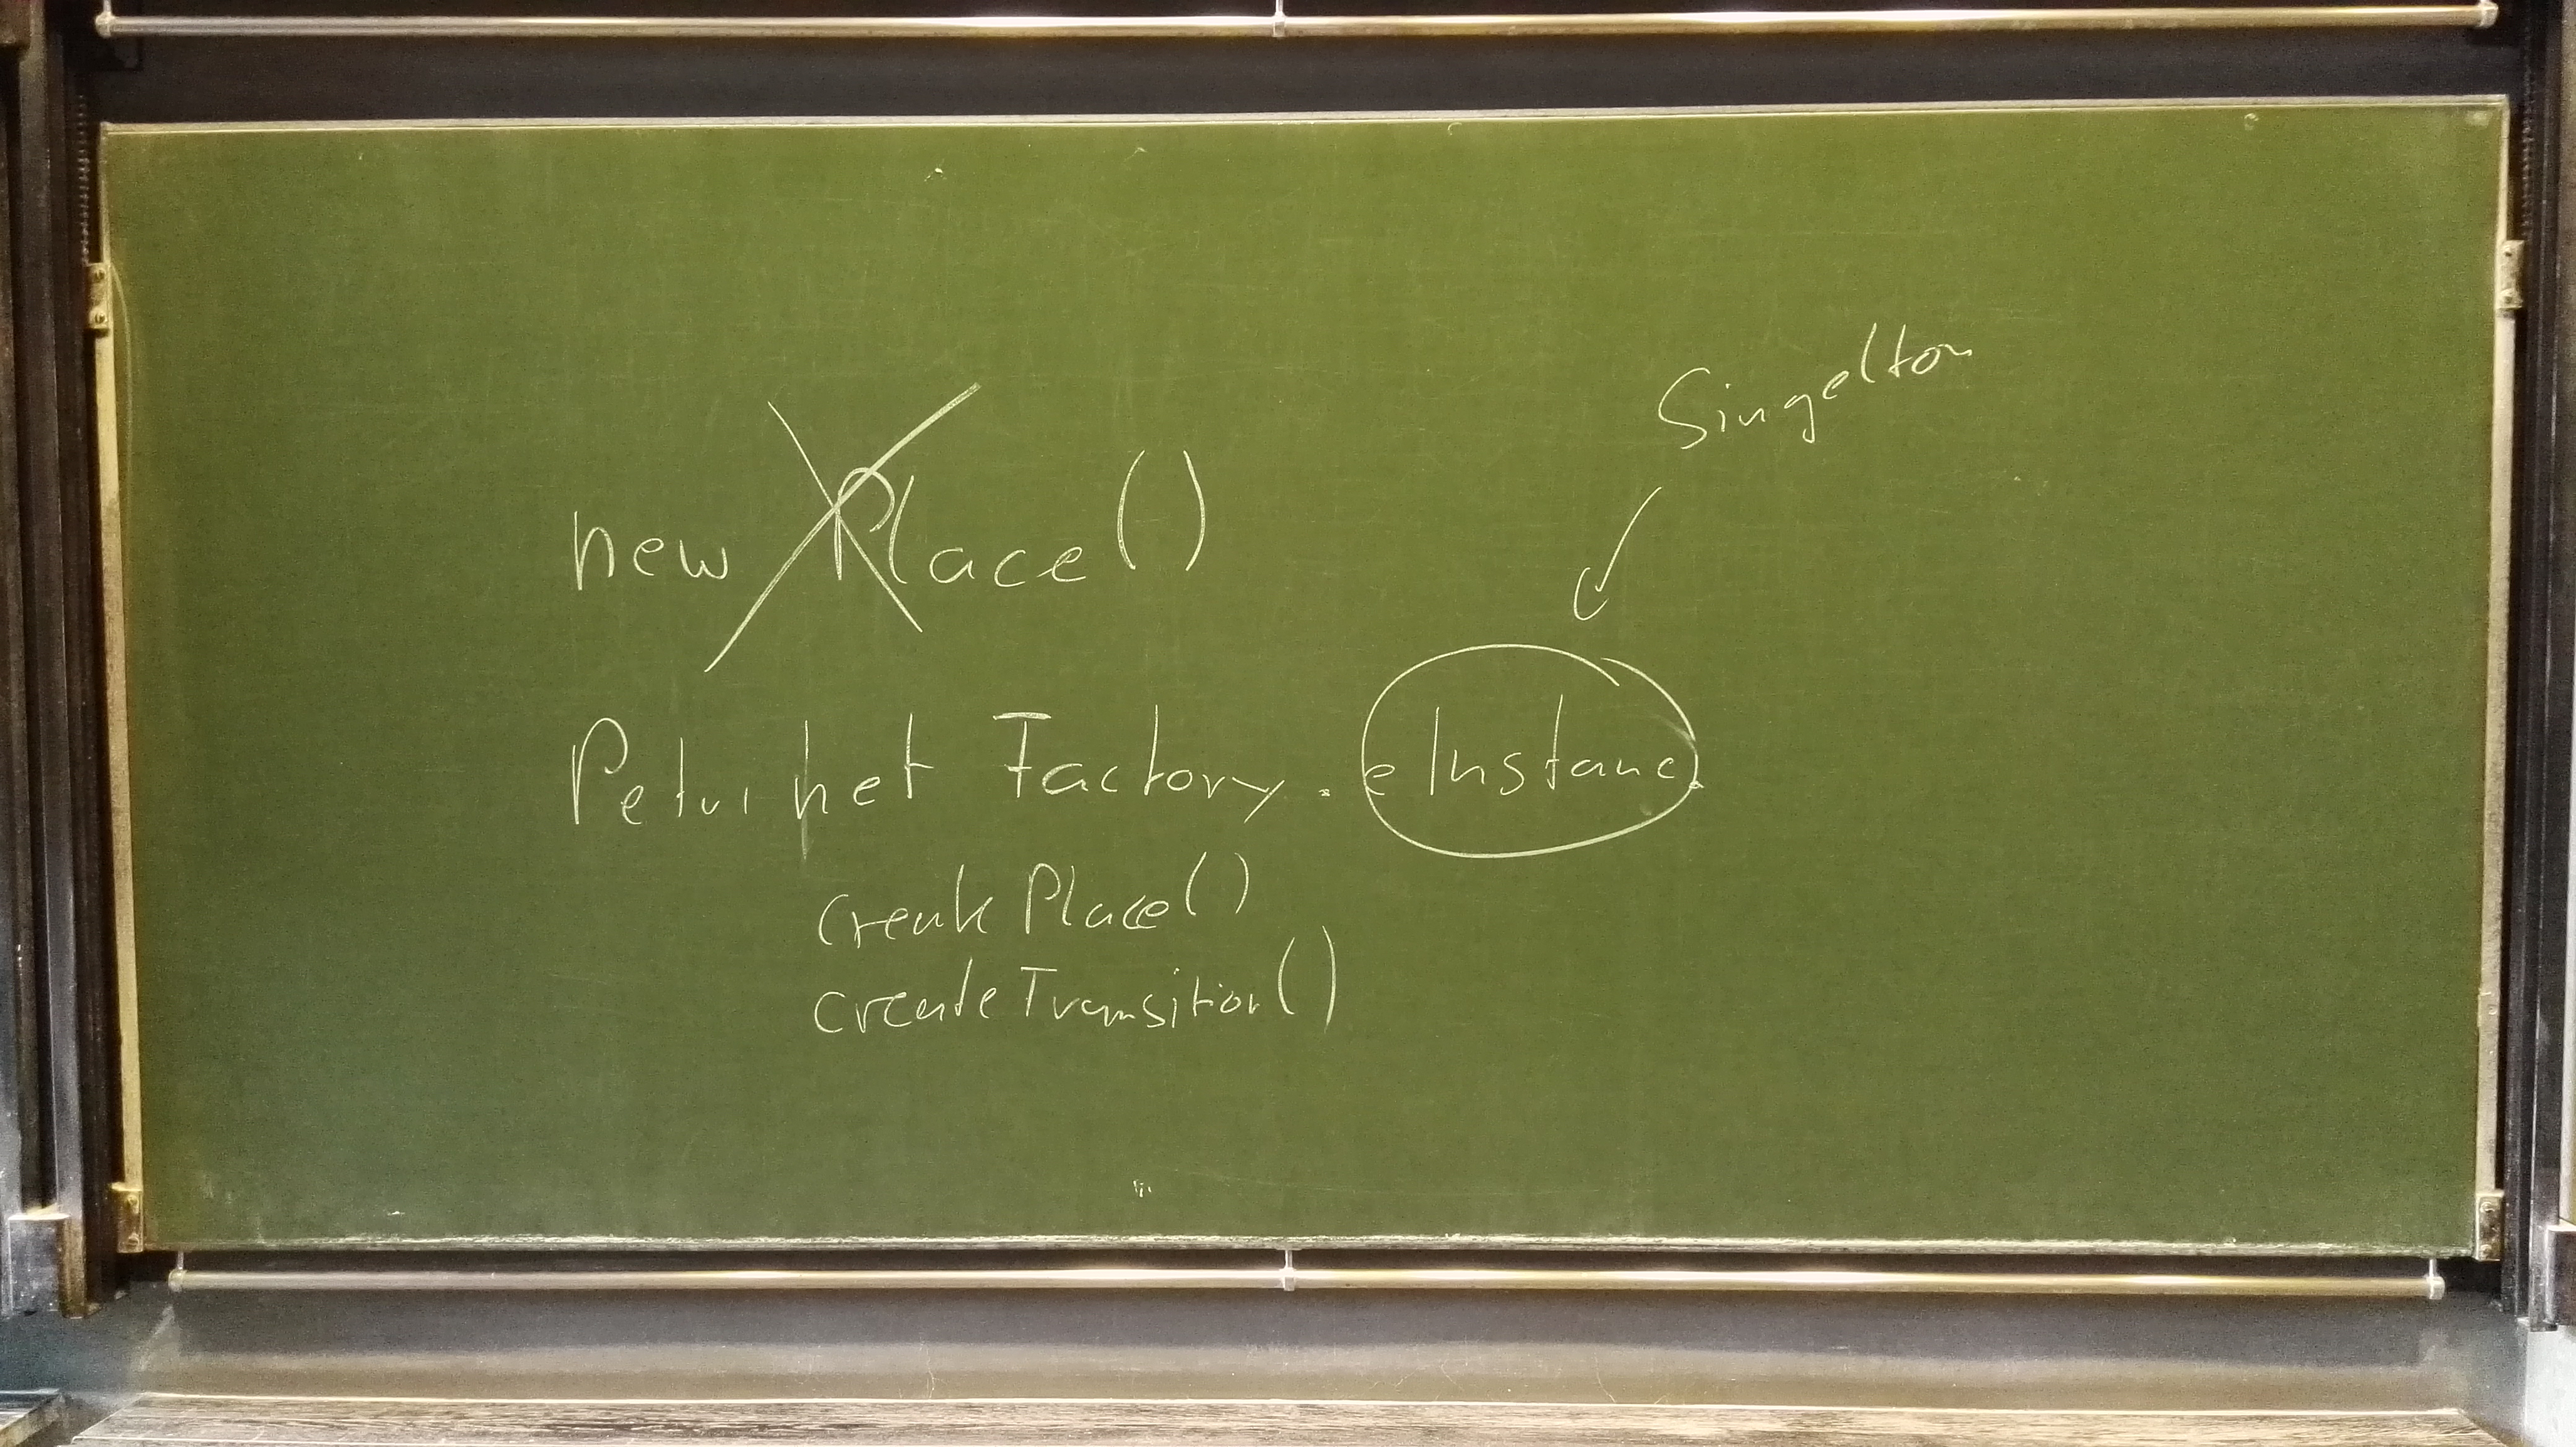 Singelton
new Place()
Petrinet Factory. eInstanc.
create Place()
createTransition()